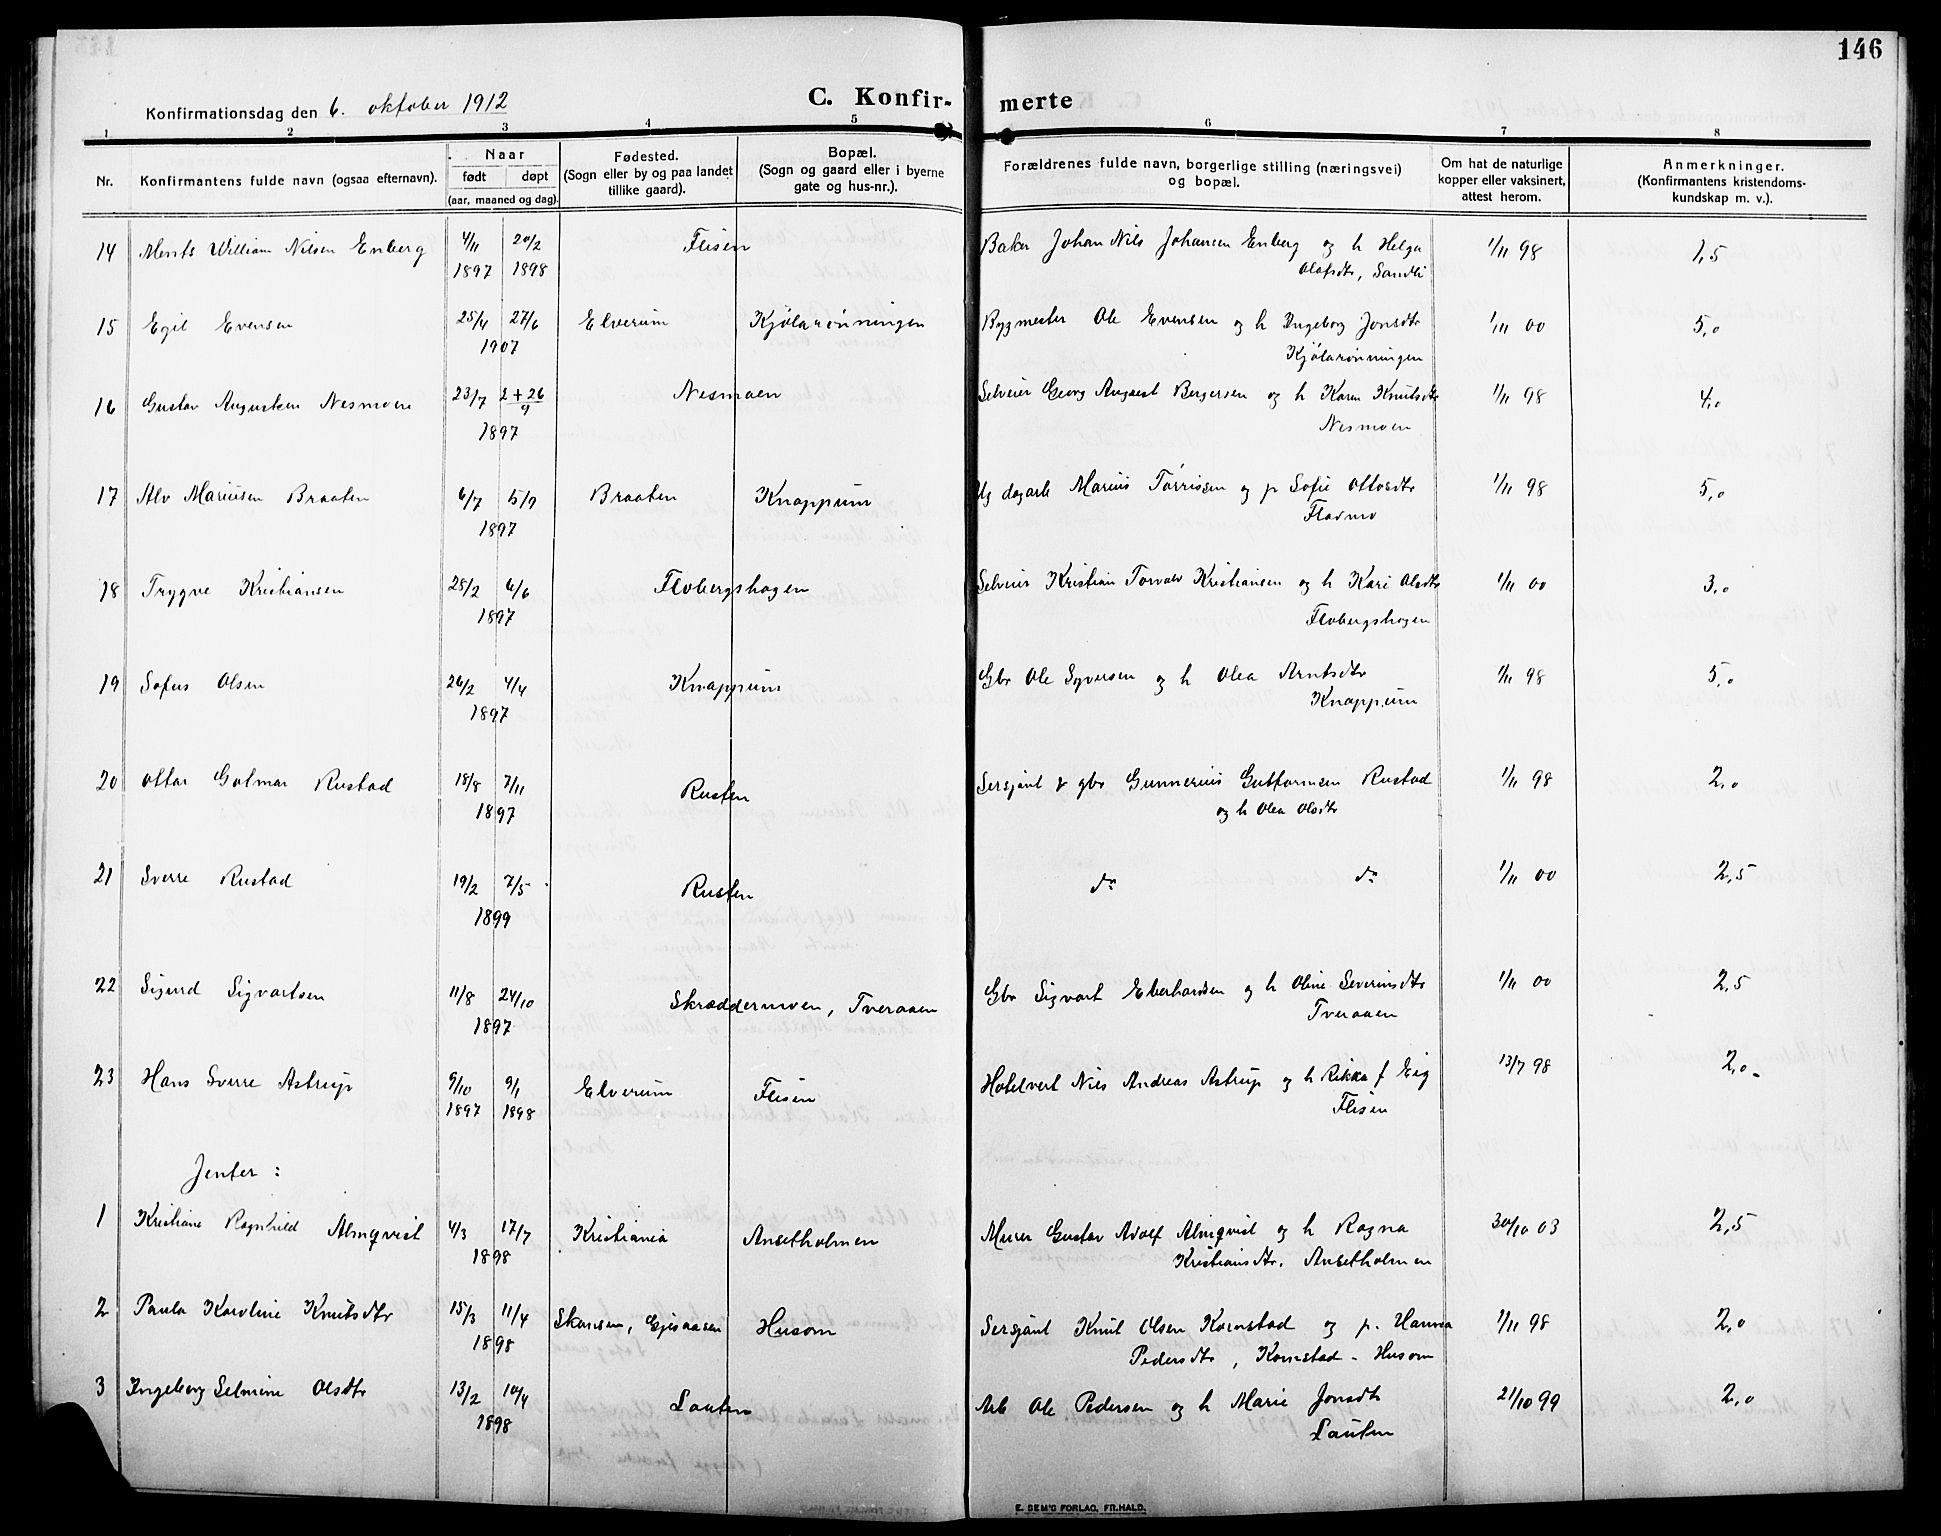 146
Konfirmationsdag den 6. oktober 1912
C. Konfir- merte
1 2 3 4 5 6 7 8
Nr.
Konfirmantens fulde navn (ogsaa efternavn).
Naar
født døpt
(aar, maaned og dag).
Fødested.
(Sogn eller by og paa landet
tillike gaard).
Bopæl.
(Sogn og gaard eller i byerne
gate og hus-nr.).
Forældrenes fulde navn, borgerlige stilling (næringsvei)
og bopæl.
Om hat de naturlige
kopper eller vaksinert,
attest herom.
Anmerkninger.
(Konfirmantens kristendoms-
kundskap m. v.).
14 William Nilsen Enberg 4/11 20/2 Flisen Baker Johan Nils Johansen Enberg og h Helga 1/11 98 1,5
1897 1898 Olafsdtr, Sandli
15 Egil Evensen 25/4 27/6 Elverum Kjölarønningen Bygmester Ole Evensen og h Ingeborg Jonsdtr 1/11 00 5,0
1907 Kjölarønningen
16 Gustav Augustsen Nesmoen 23/7 2+26/9 Nesmoen Selveier Georg August Bergersen og h Karen Knutsdtr 1/11 98 4,0
1897 Nesmoen
17 Alv Mariusen Braaten 6/7 5/9 Braaten Knappum Ug dagarb Marius Tørrissen og p Sofie Ottosdtr 1/11 98 5,0
1897 Fladmo
18 Trygve Kristiansen 28/2 6/6 Flobergshagen Selveier Kristian Torvald Kristiansen og h Kari Olsdtr 1/11 00 3,0
1897 Flobergshagen
19 Sofus Olsen 26/2 4/4 Knappum Gbr Ole Syversen og h Olea Arntsdtr 1/11 98 5,0
1897 Knappum
20 Ottar Golmar Rustad 18/8 7/11 Rusten Sersjant & gbr Gunnerius Guttormsen Rustad 1/11 98 2,0
1897 og h Olea Olsdtr
21 Sverre Rustad 19/2 7/5 Rusten do do 1/11 00 2,5
1899
22 Sigurd Sigvartsen 11/8 24/10 Skræddermoen, Tveraaen Gbr Sigvart Eberhardsen og h Oline Severinsdtr 1/11 00 2,5
1897 Tveraaen
23 Hans Sverre Astrup 9/10 9/1 Elverum Flisen Hotelvert Nils Andreas Astrup og h Rikka f Eig 13/7 98 2,0
1897 1898 Flisen
Jenter :
1 Kristiane Ragnhild Almqvist 4/3 17/7 Kristiania Ansetholmen Murer Gustav Adolf Almqvist og h Ragna 30/10 03 2,5
1898 Kristiansdtr. Ansetholmen
2 Paula Karoline Knutsdtr 15/3 11/4 Skansen, Gjesaasen Husom Sersjant Knut Olsen Kornstad og p. Hanna 1/11 98 2,0
1898 Pedersdtr, Kornstad - Husom
3 Ingeborg Selmine Olsdtr 13/2 10/4 Lauten Arb Ole Pedersen og h Marie Jonsdtr 21/10 99 2,0
1898 Lauten
E. SEM'S FORLAG, FR.HALD.